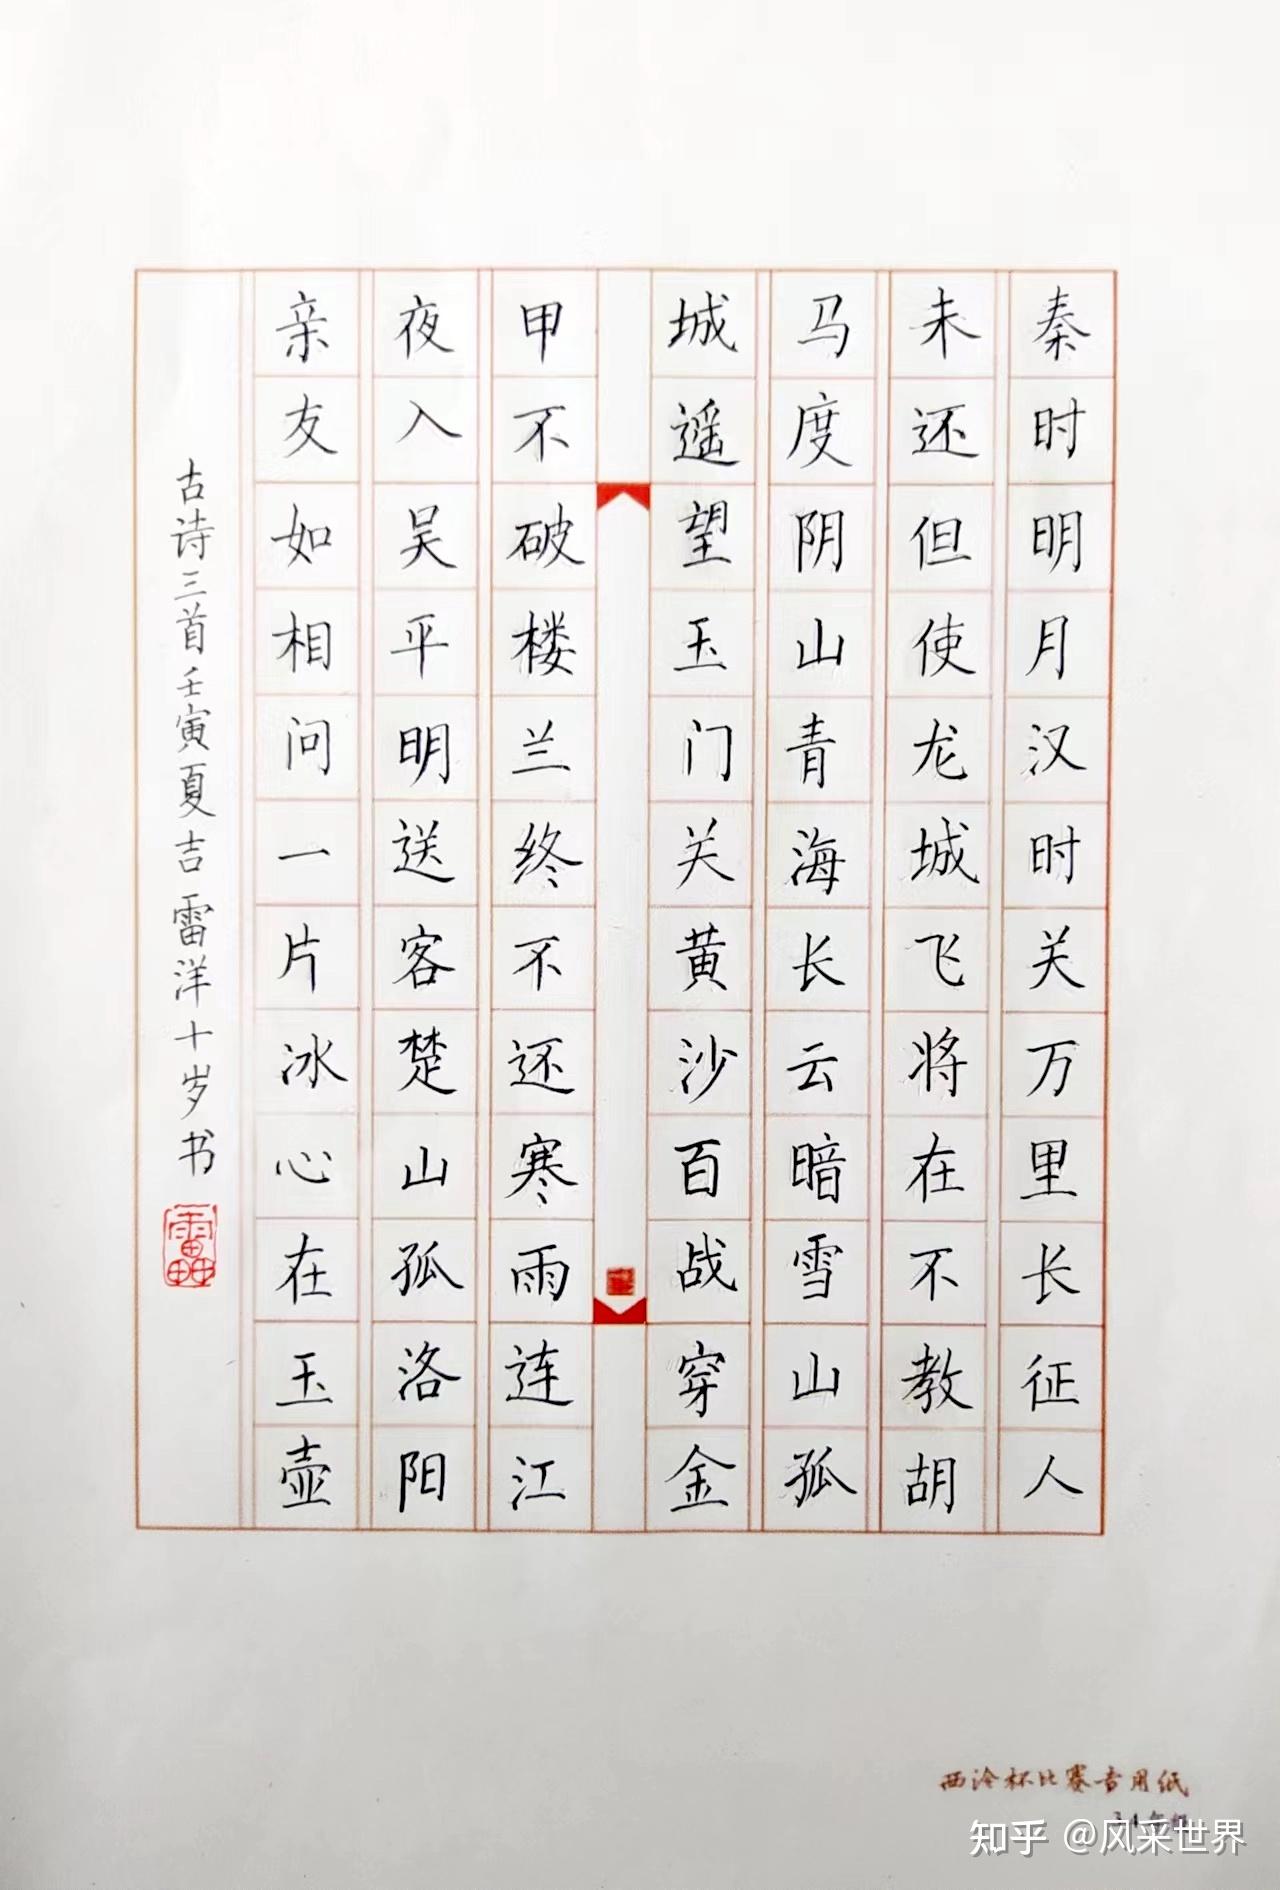 秦时明月汉时关万里长征人
未还但使龙城飞将在不教胡
马度阴山青海长云暗雪山孤
城遥望玉门关黄沙百战穿金
甲不破楼兰终不还寒雨连江
夜入吴平明送客楚山孤洛阳
亲友如相问一片冰心在玉壶
古诗三首壬寅夏吉雷洋十岁书
西泠杯比赛专用纸
知乎 @风采世界